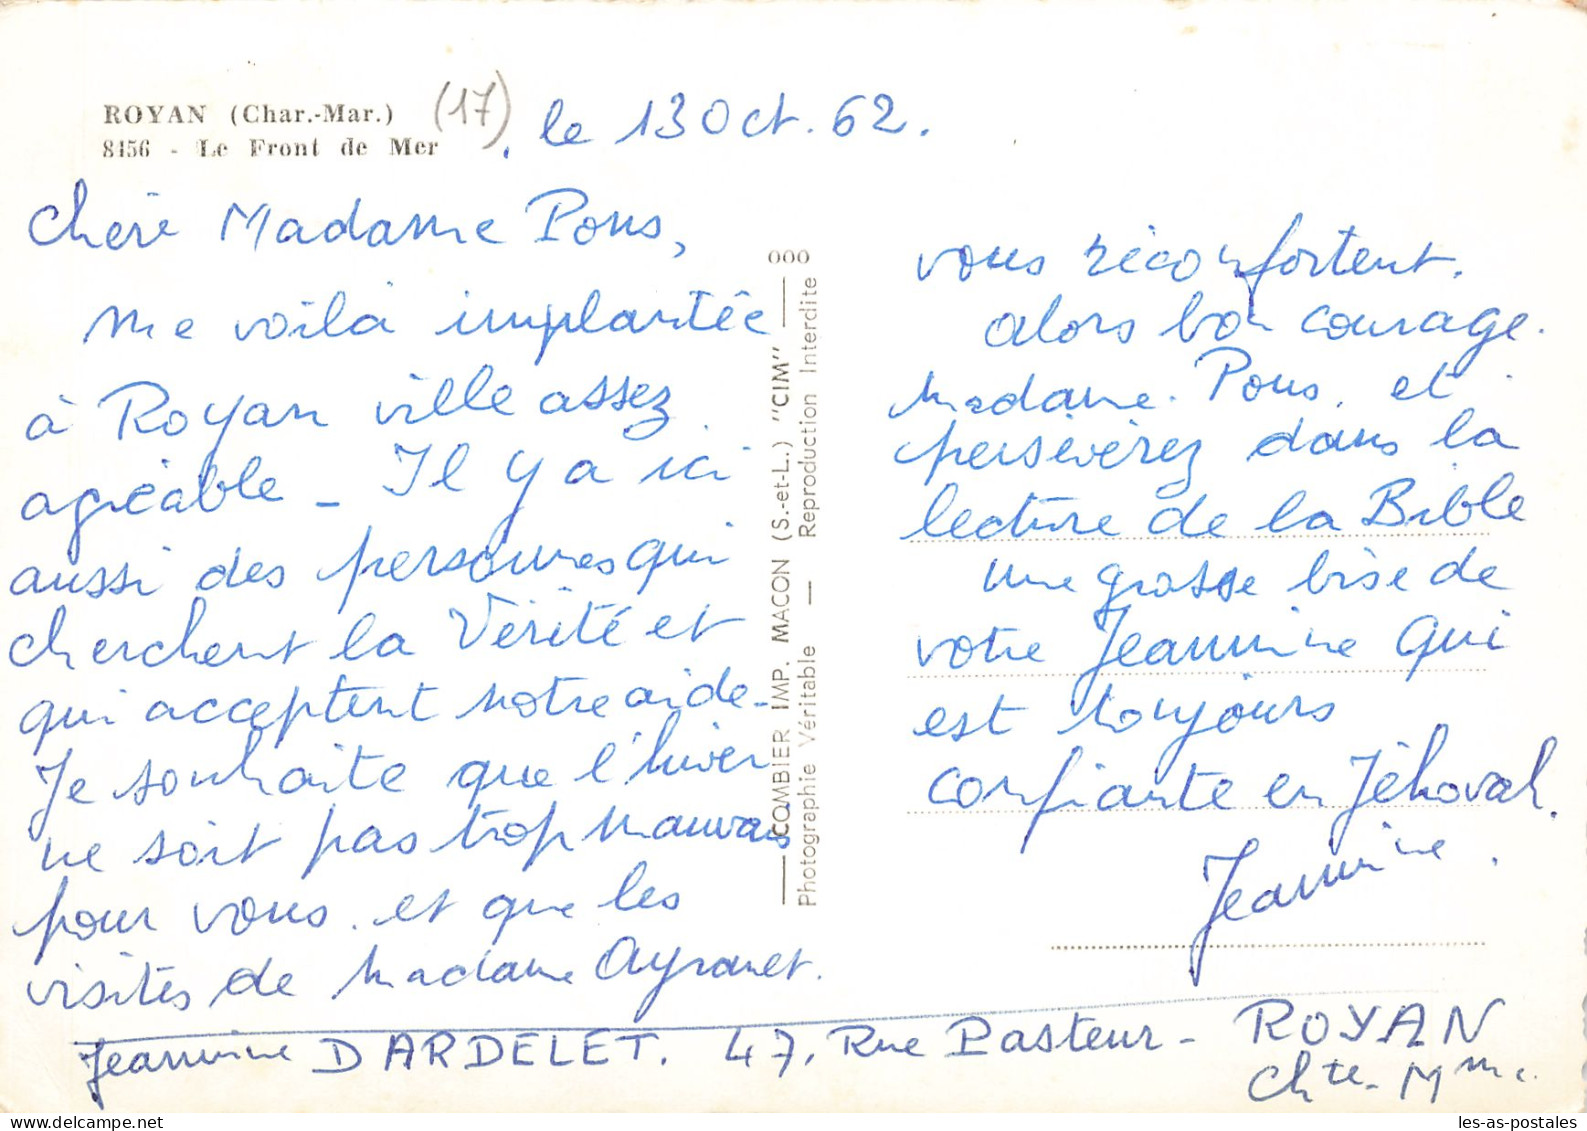 ROYAN (Char.-Mar.) (17)
8456 - Le Front de Mer
. le 13 Oct. 62.
Chère Madame Pons,
me voilà implantée
à Royan ville assez
agréable - Il y a ici
aussi des personnes qui
cherchent la Vérité et
qui acceptent notre aide -
Je souhaite que l'hiver
ne soit pas trop mauvais
pour vous. et que les
visites de Madame Ayranet.
vous réconfortent.
alors bon courage.
Madame. Pons, et
persévérez dans la
lecture de la Bible
une grosse bise de
votre Jeannine qui
est toujours
confiante en Jéhovah.
Jeannine.
Jeannine DARDELET. 47, Rue Pasteur - ROYAN
Chte - Mme.
COMBIER IMP. MACON (S.-et-L.) "CIM" 000
Photographie Véritable — Reproduction Interdite
les-as-postales